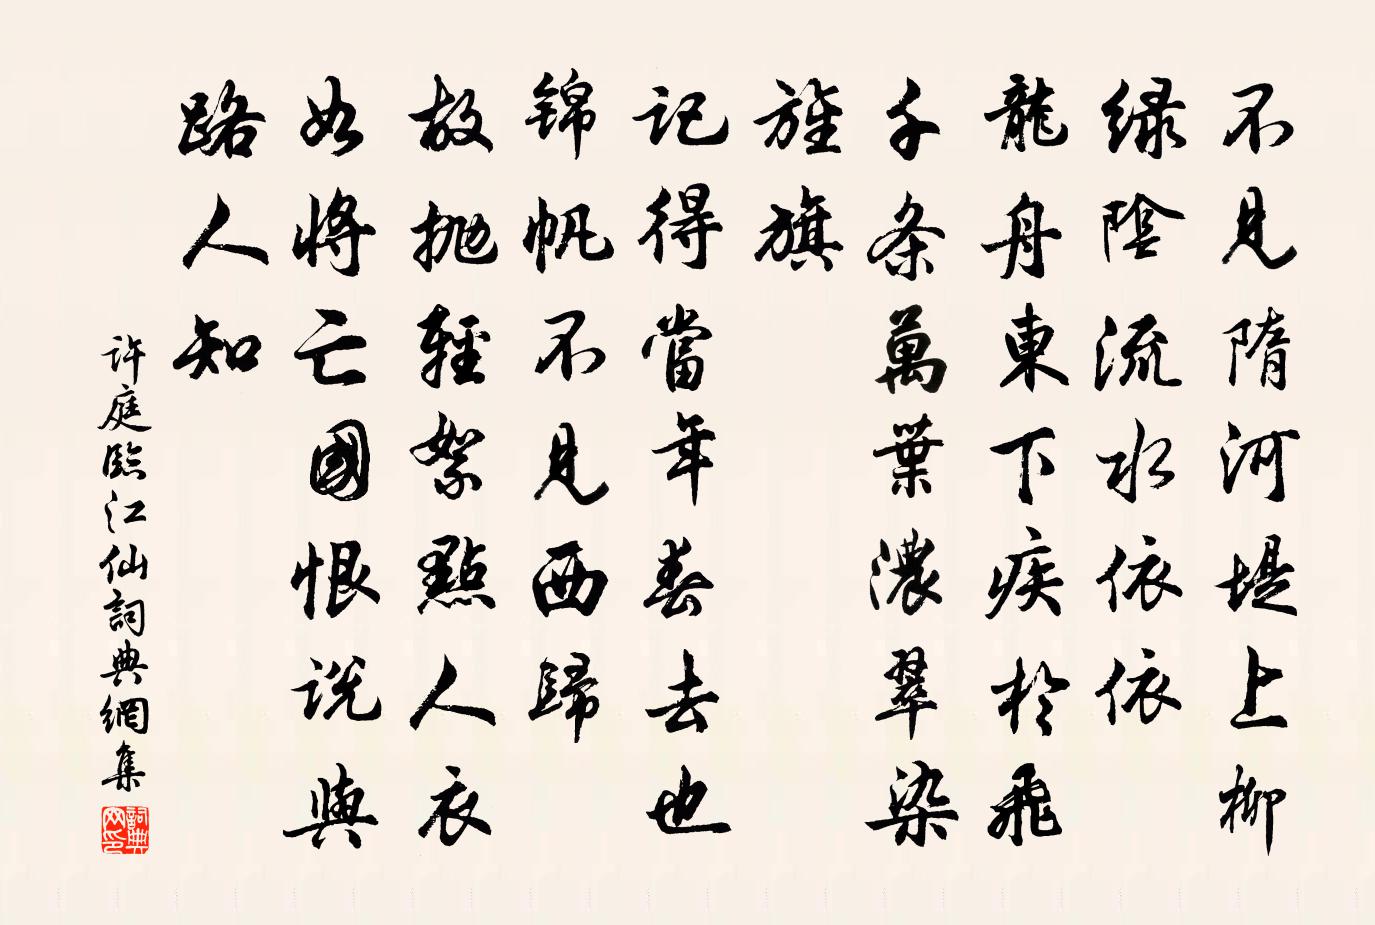 不見隋河堤上柳
緑陰流水依依
龍舟東下疾於飛
千条萬葉濃翠染
旌旗
記得當年春去也
锦帆不見西歸
故抛輕絮點人衣
如將亡國恨说與
路人知
许庭臨江仙詞典網集
詞典网印